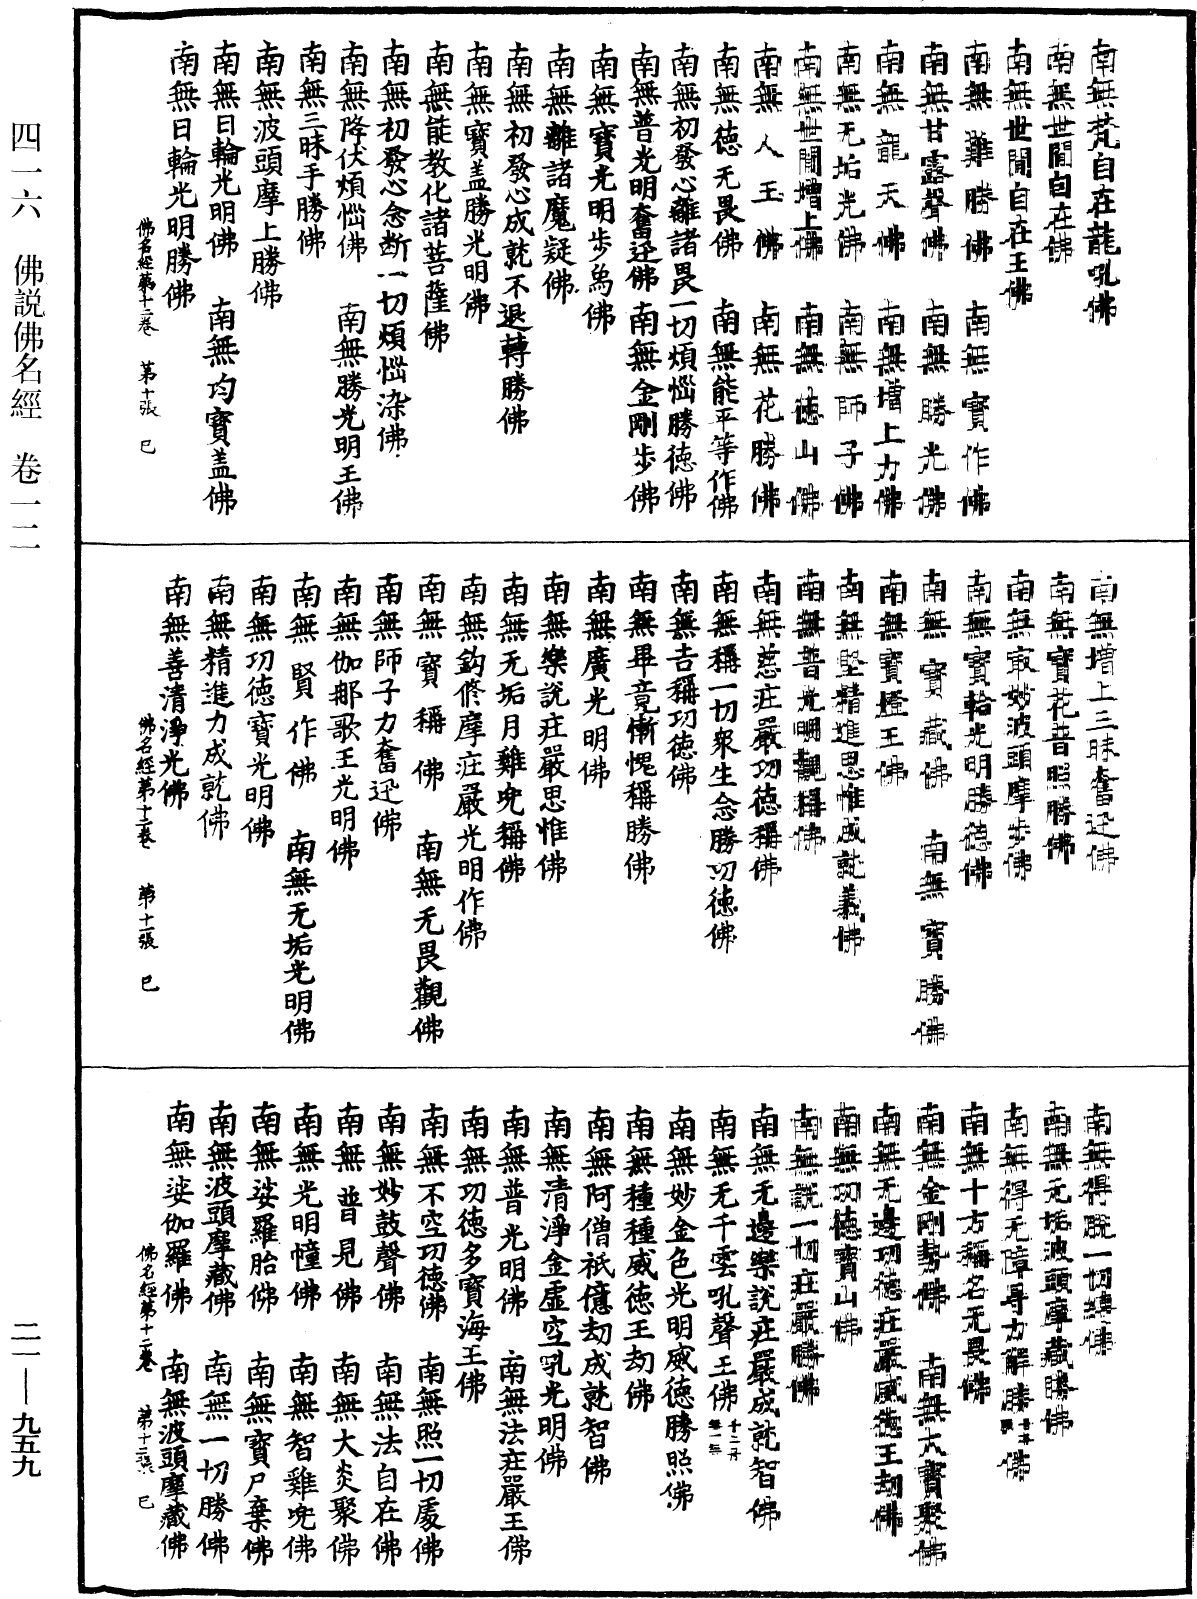 南無梵自在龍吼佛
南無世間自在佛
南無世間自在王佛
南無難勝佛　南無寶作佛
南無甘露聲佛　南無勝光佛
南無龍天佛　南無增上力佛
南無无垢光佛　南無師子佛
南無世間增上佛　南無德山佛
南無人王佛　南無花勝佛
南無德无畏佛　南無能平等作佛
南無初發心離諸畏一切煩惱勝德佛
南無普光明奮迅佛　南無金剛步佛
南無寶光明步為佛
南無離諸魔疑佛
南無初發心成就不退轉勝佛
南無寶盖勝光明佛
南無能教化諸菩薩佛
南無初發心念断一切煩惱染佛
南無降伏煩惱佛　南無勝光明王佛
南無三昧手勝佛
南無波頭摩上勝佛
南無日輪光明佛　南無均寶盖佛
南無日輪光明勝佛
佛名經第十二卷　第十張　巳
南無增上三昧奮迅佛
南無寶花普照勝佛
南無㝡妙波頭摩步佛
南無寶輪光明勝德佛
南無寶藏佛　南無寶勝佛
南無寶燈王佛
南無堅精進思惟成就義佛
南無普光明觀稱佛
南無慈莊嚴功德稱佛
南無稱一切衆生念勝功德佛
南無吉稱功德佛
南無畢竟慚愧稱勝佛
南無廣光明佛
南無樂說莊嚴思惟佛
南無无垢月雞兜稱佛
南無鈎修摩莊嚴光明作佛
南無寶稱佛　南無无畏觀佛
南無師子力奮迅佛
南無伽郍歌王光明佛
南無賢作佛　南無无垢光明佛
南無功德寶光明佛
南無精進力成就佛
南無善清淨光佛
佛名經第十二卷　第十一張　巳
南無得脫一切縛佛
南無无垢波頭摩藏勝佛
南無得无障㝵力解勝佛
南無十方稱名无畏佛
南無金剛勢佛　南無大寶聚佛
南無无邊功德莊嚴威德王劫佛
南無功德寶山佛
南無說一切莊嚴勝佛
南無无邊樂說莊嚴成就智佛
南無无千雲吼聲王佛
南無妙金色光明威德勝照佛
南無種種威德王劫佛
南無阿僧祇億劫成就智佛
南無清淨金虛空吼光明佛
南無普光明佛　南無法莊嚴王佛
南無功德多寶海王佛
南無不空功德佛　南無照一切處佛
南無妙鼓聲佛　南無法自在佛
南無普見佛　南無大炎聚佛
南無光明幢佛　南無智雞兜佛
南無娑羅胎佛　南無寶尸棄佛
南無波頭摩藏佛　南無一切勝佛
南無娑伽羅佛　南無波頭摩藏佛
佛名經第十二卷　第十二張　巳
四一六　佛説佛名經　卷一二
二一—九五九